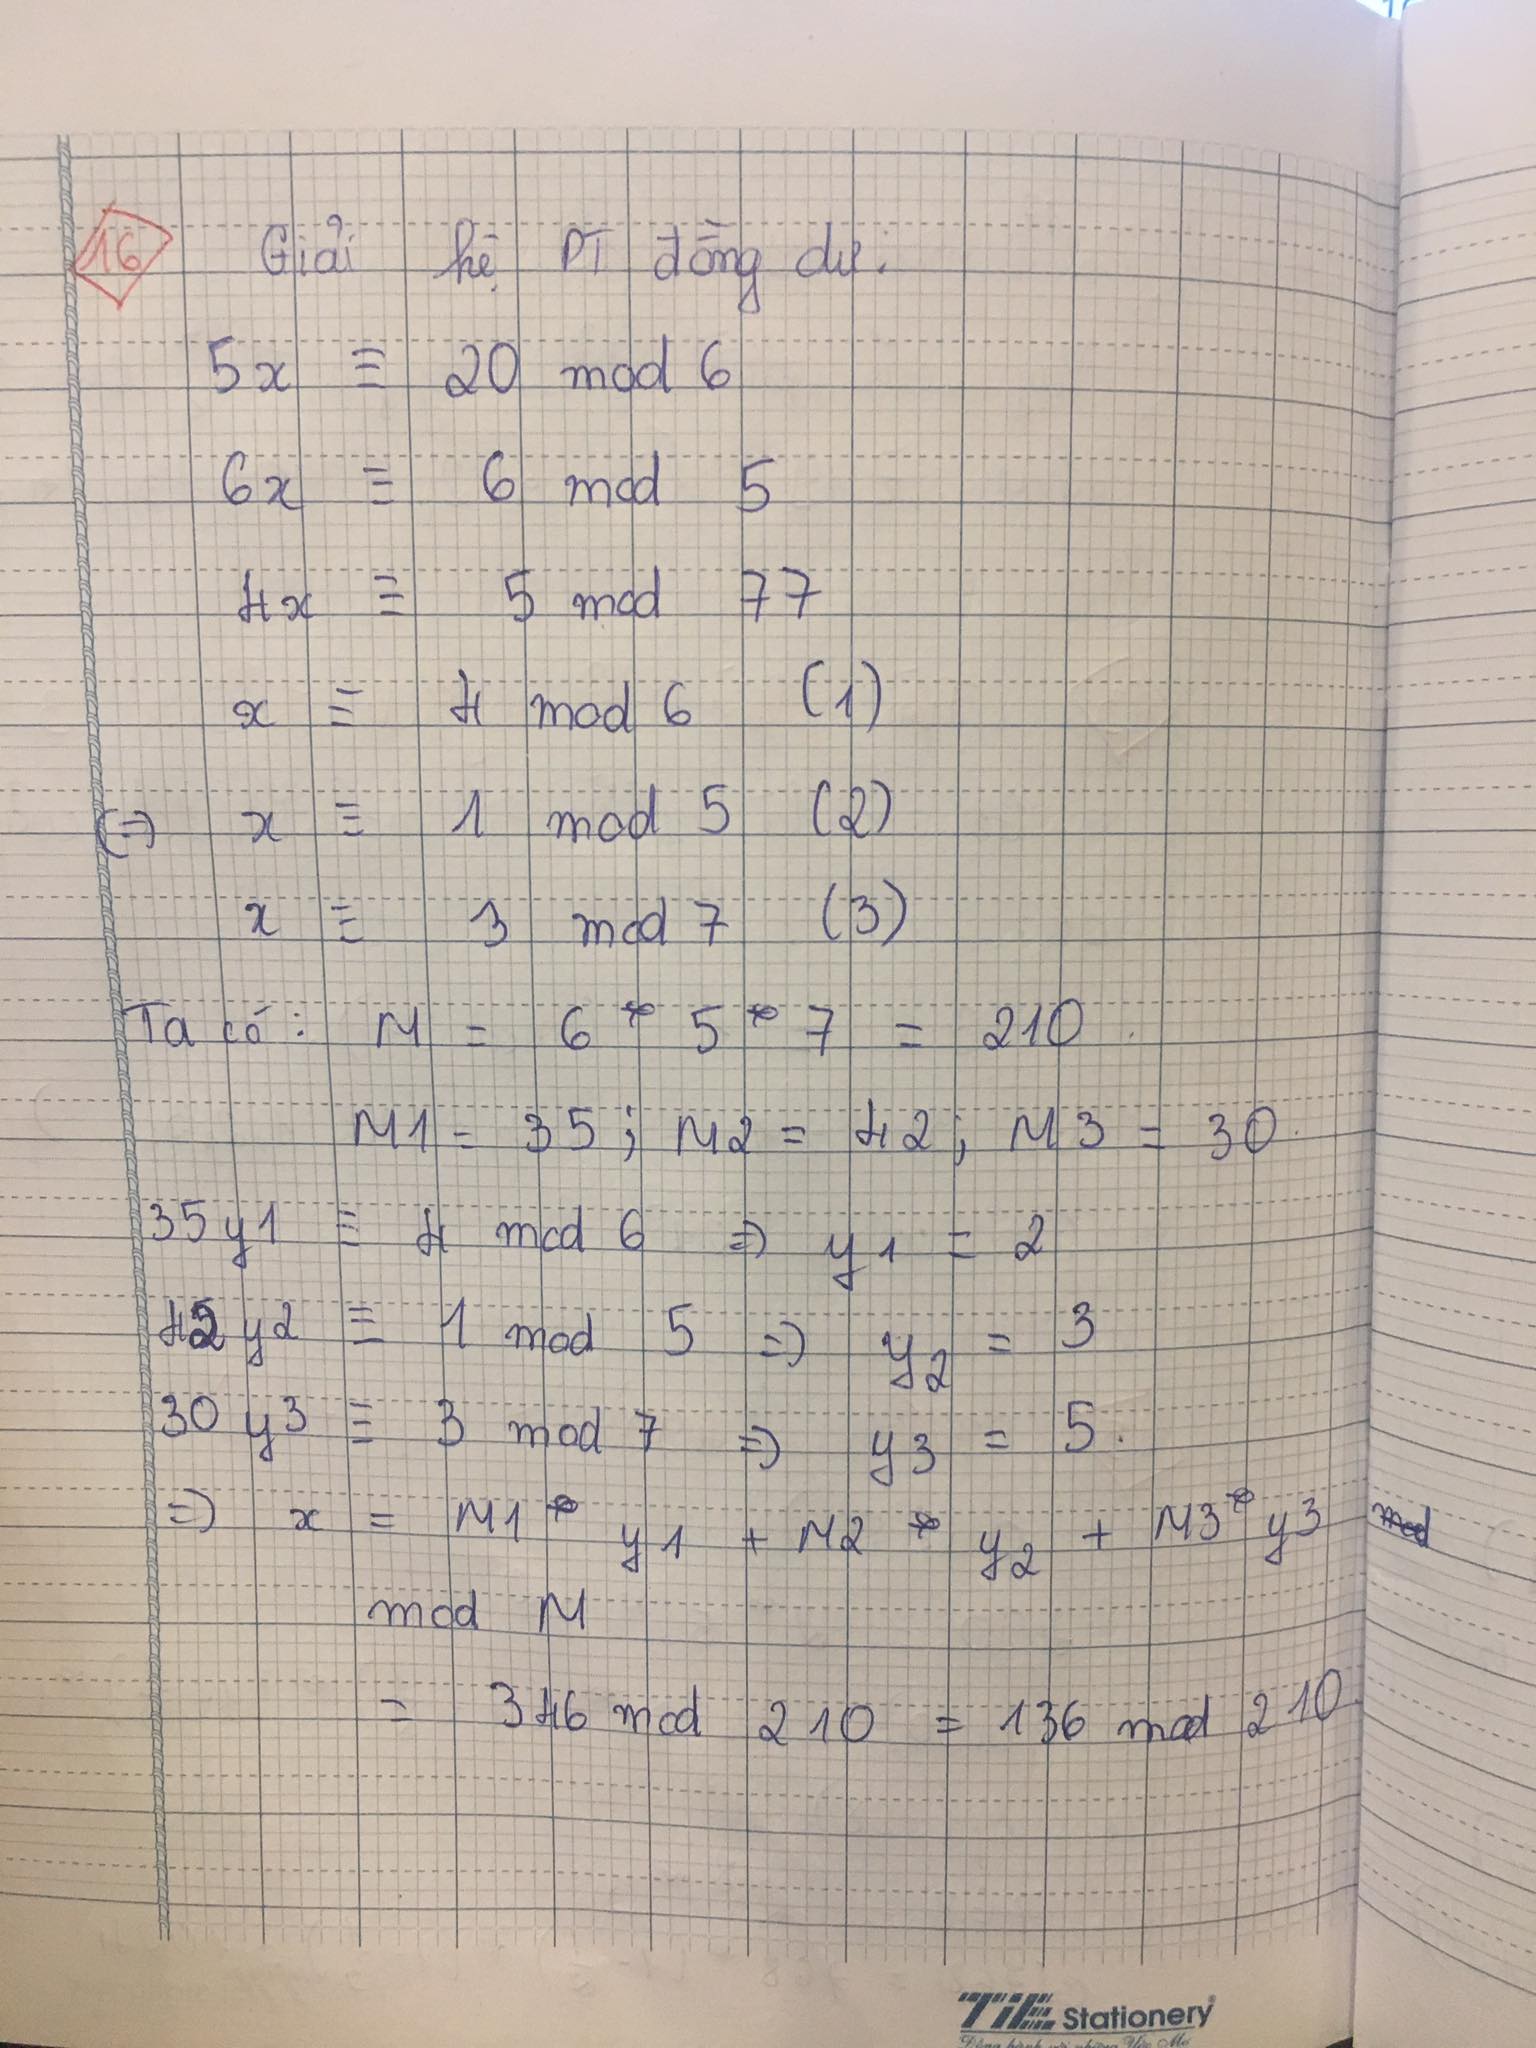 16 Giải hệ PT đồng dư:
5x ≡ 20 mod 6
6x ≡ 6 mod 5
4x ≡ 5 mod 77
x ≡ 4 mod 6 (1)
(=) x ≡ 1 mod 5 (2)
x ≡ 3 mod 7 (3)
Ta có: M = 6 * 5 * 7 = 210.
M1 = 35; M2 = 42; M3 = 30.
35y1 ≡ 4 mod 6 => y1 = 2
42y2 ≡ 1 mod 5 => y2 = 3
30y3 ≡ 3 mod 7 => y3 = 5.
=> x = M1 * y1 + M2 * y2 + M3 * y3
mod M
= 346 mod 210 = 136 mod 210.
TiE Stationery